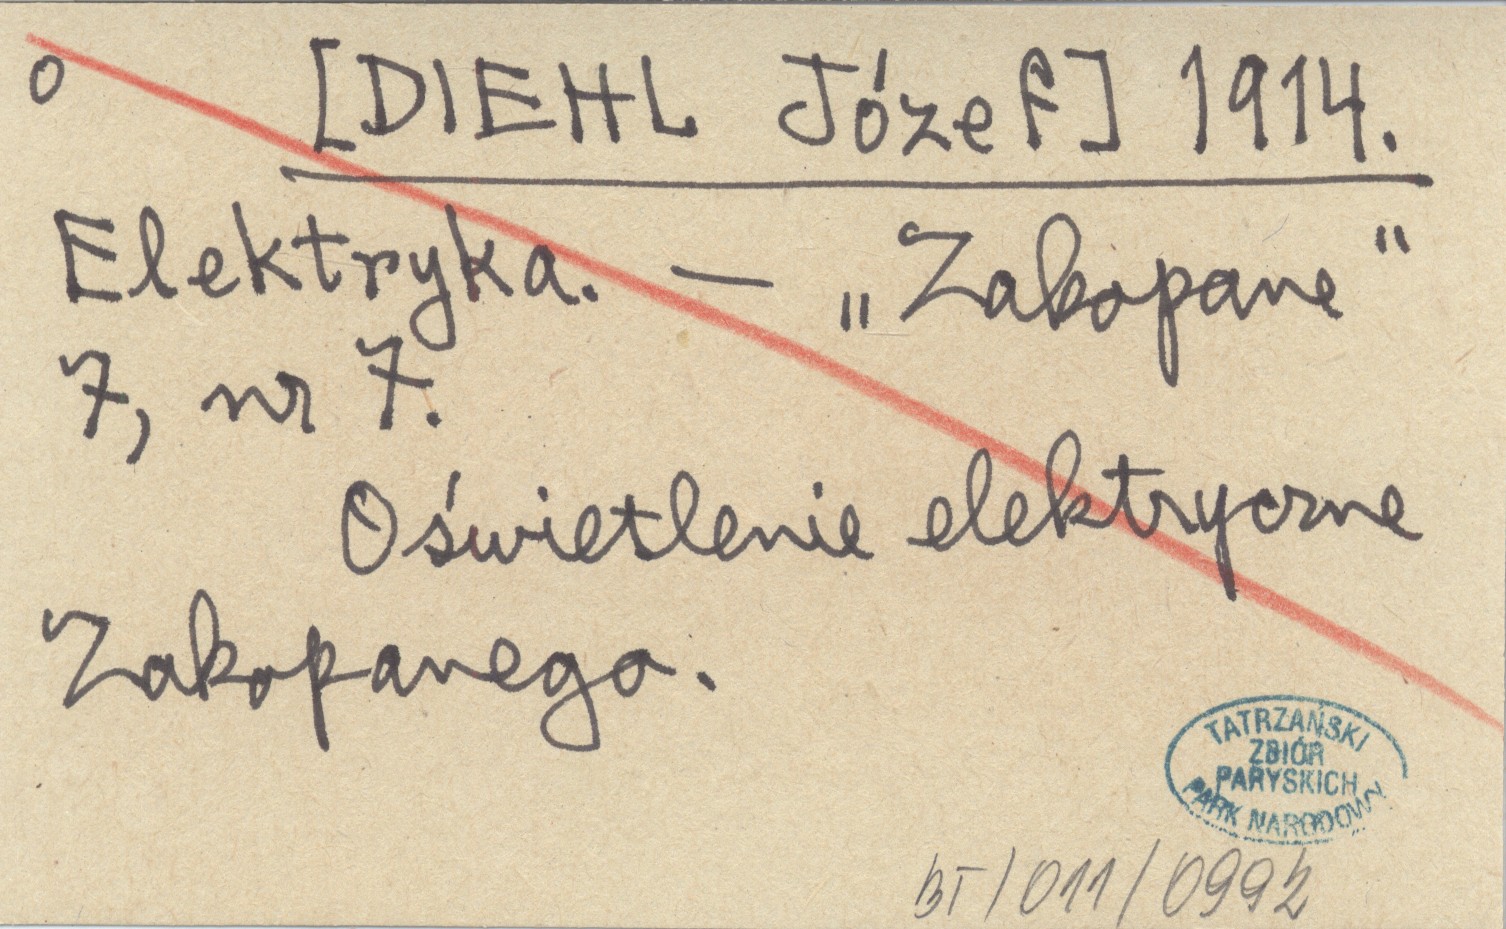 o [DIEHL Józef] 1914.
Elektryka. — „Zakopane"
7, nr 7.
Oświetlenie elektryczne
Zakopanego.
TATRZAŃSKI
ZBIÓR
PARYSKICH
PARK NARODOWY
BT/011/0992